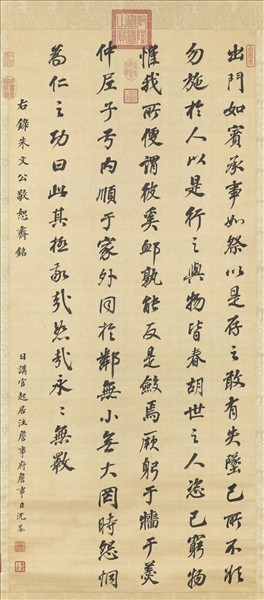 出門如賓承事如祭以是存之敢有失墜己所不欲
勿施於人以是行之與物皆春胡世之人恣己窮物
惟我所便謂彼奚卹孰能反是斂焉厥躬于牆于羹
仲尼子弓內順于家外同於邦無小無大罔時怨恫
為仁之功曰此其極敬哉恕哉永永無斁
右錄朱文公敬恕齋銘
日講官起居注詹事府詹事臣沈荃